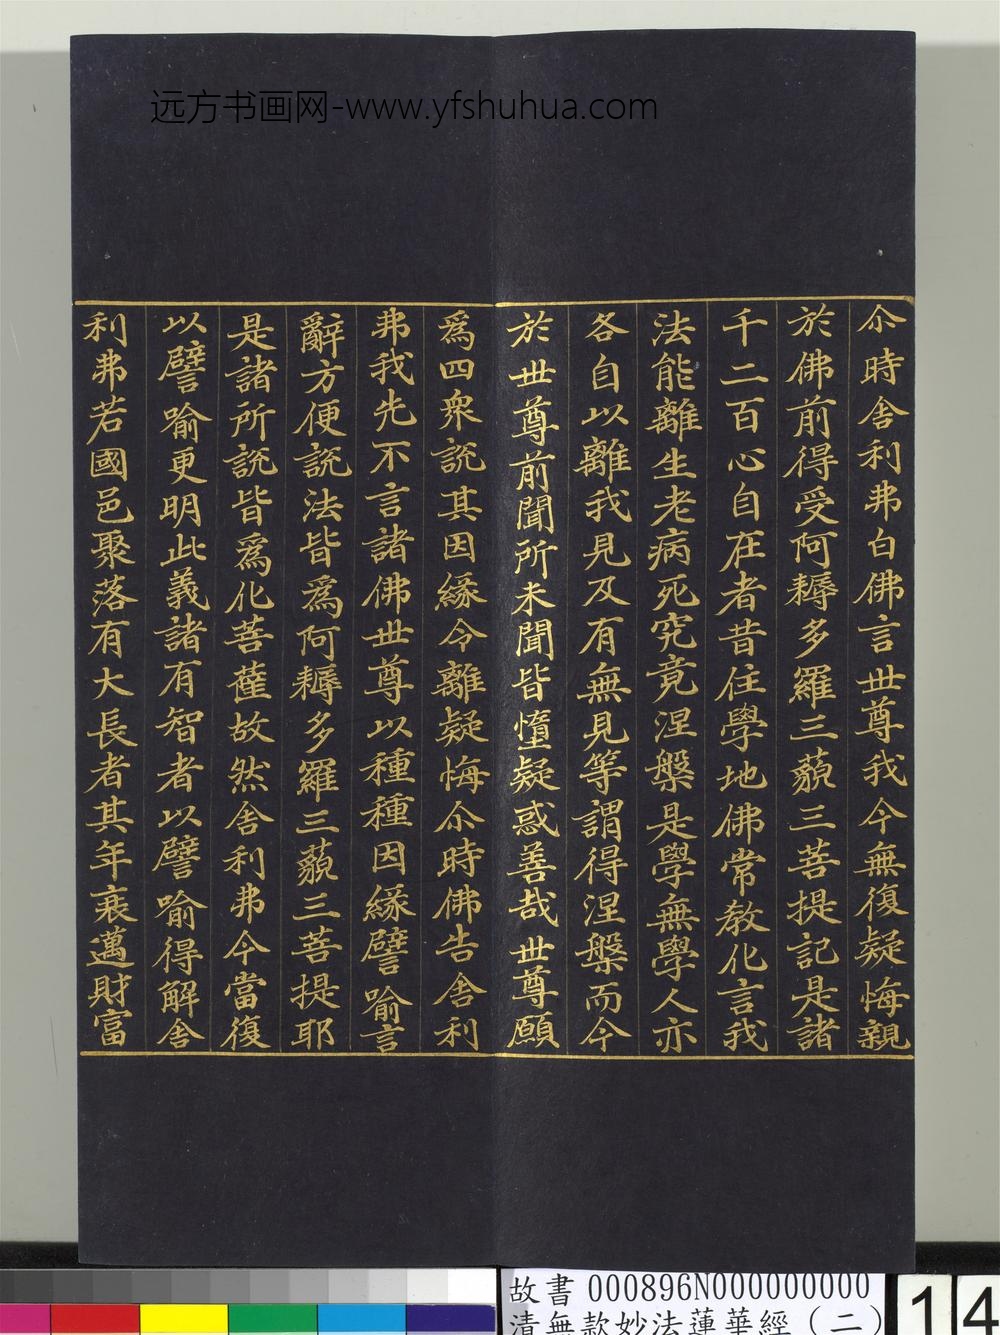 远方书画网-www.yfshuhua.com
尒時舍利弗白佛言世尊我今無復疑悔親
於佛前得受阿耨多羅三藐三菩提記是諸
千二百心自在者昔住學地佛常教化言我
法能離生老病死究竟涅槃是學無學人亦
各自以離我見及有無見等謂得涅槃而今
於世尊前聞所未聞皆墮疑惑善哉世尊願
為四眾說其因緣令離疑悔尒時佛告舍利
弗我先不言諸佛世尊以種種因緣譬喻言
辭方便說法皆為阿耨多羅三藐三菩提耶
是諸所說皆為化菩薩故然舍利弗今當復
以譬喻更明此義諸有智者以譬喻得解舍
利弗若國邑聚落有大長者其年衰邁財富
故書 000896N000000000
清無款妙法蓮華經（二）
14